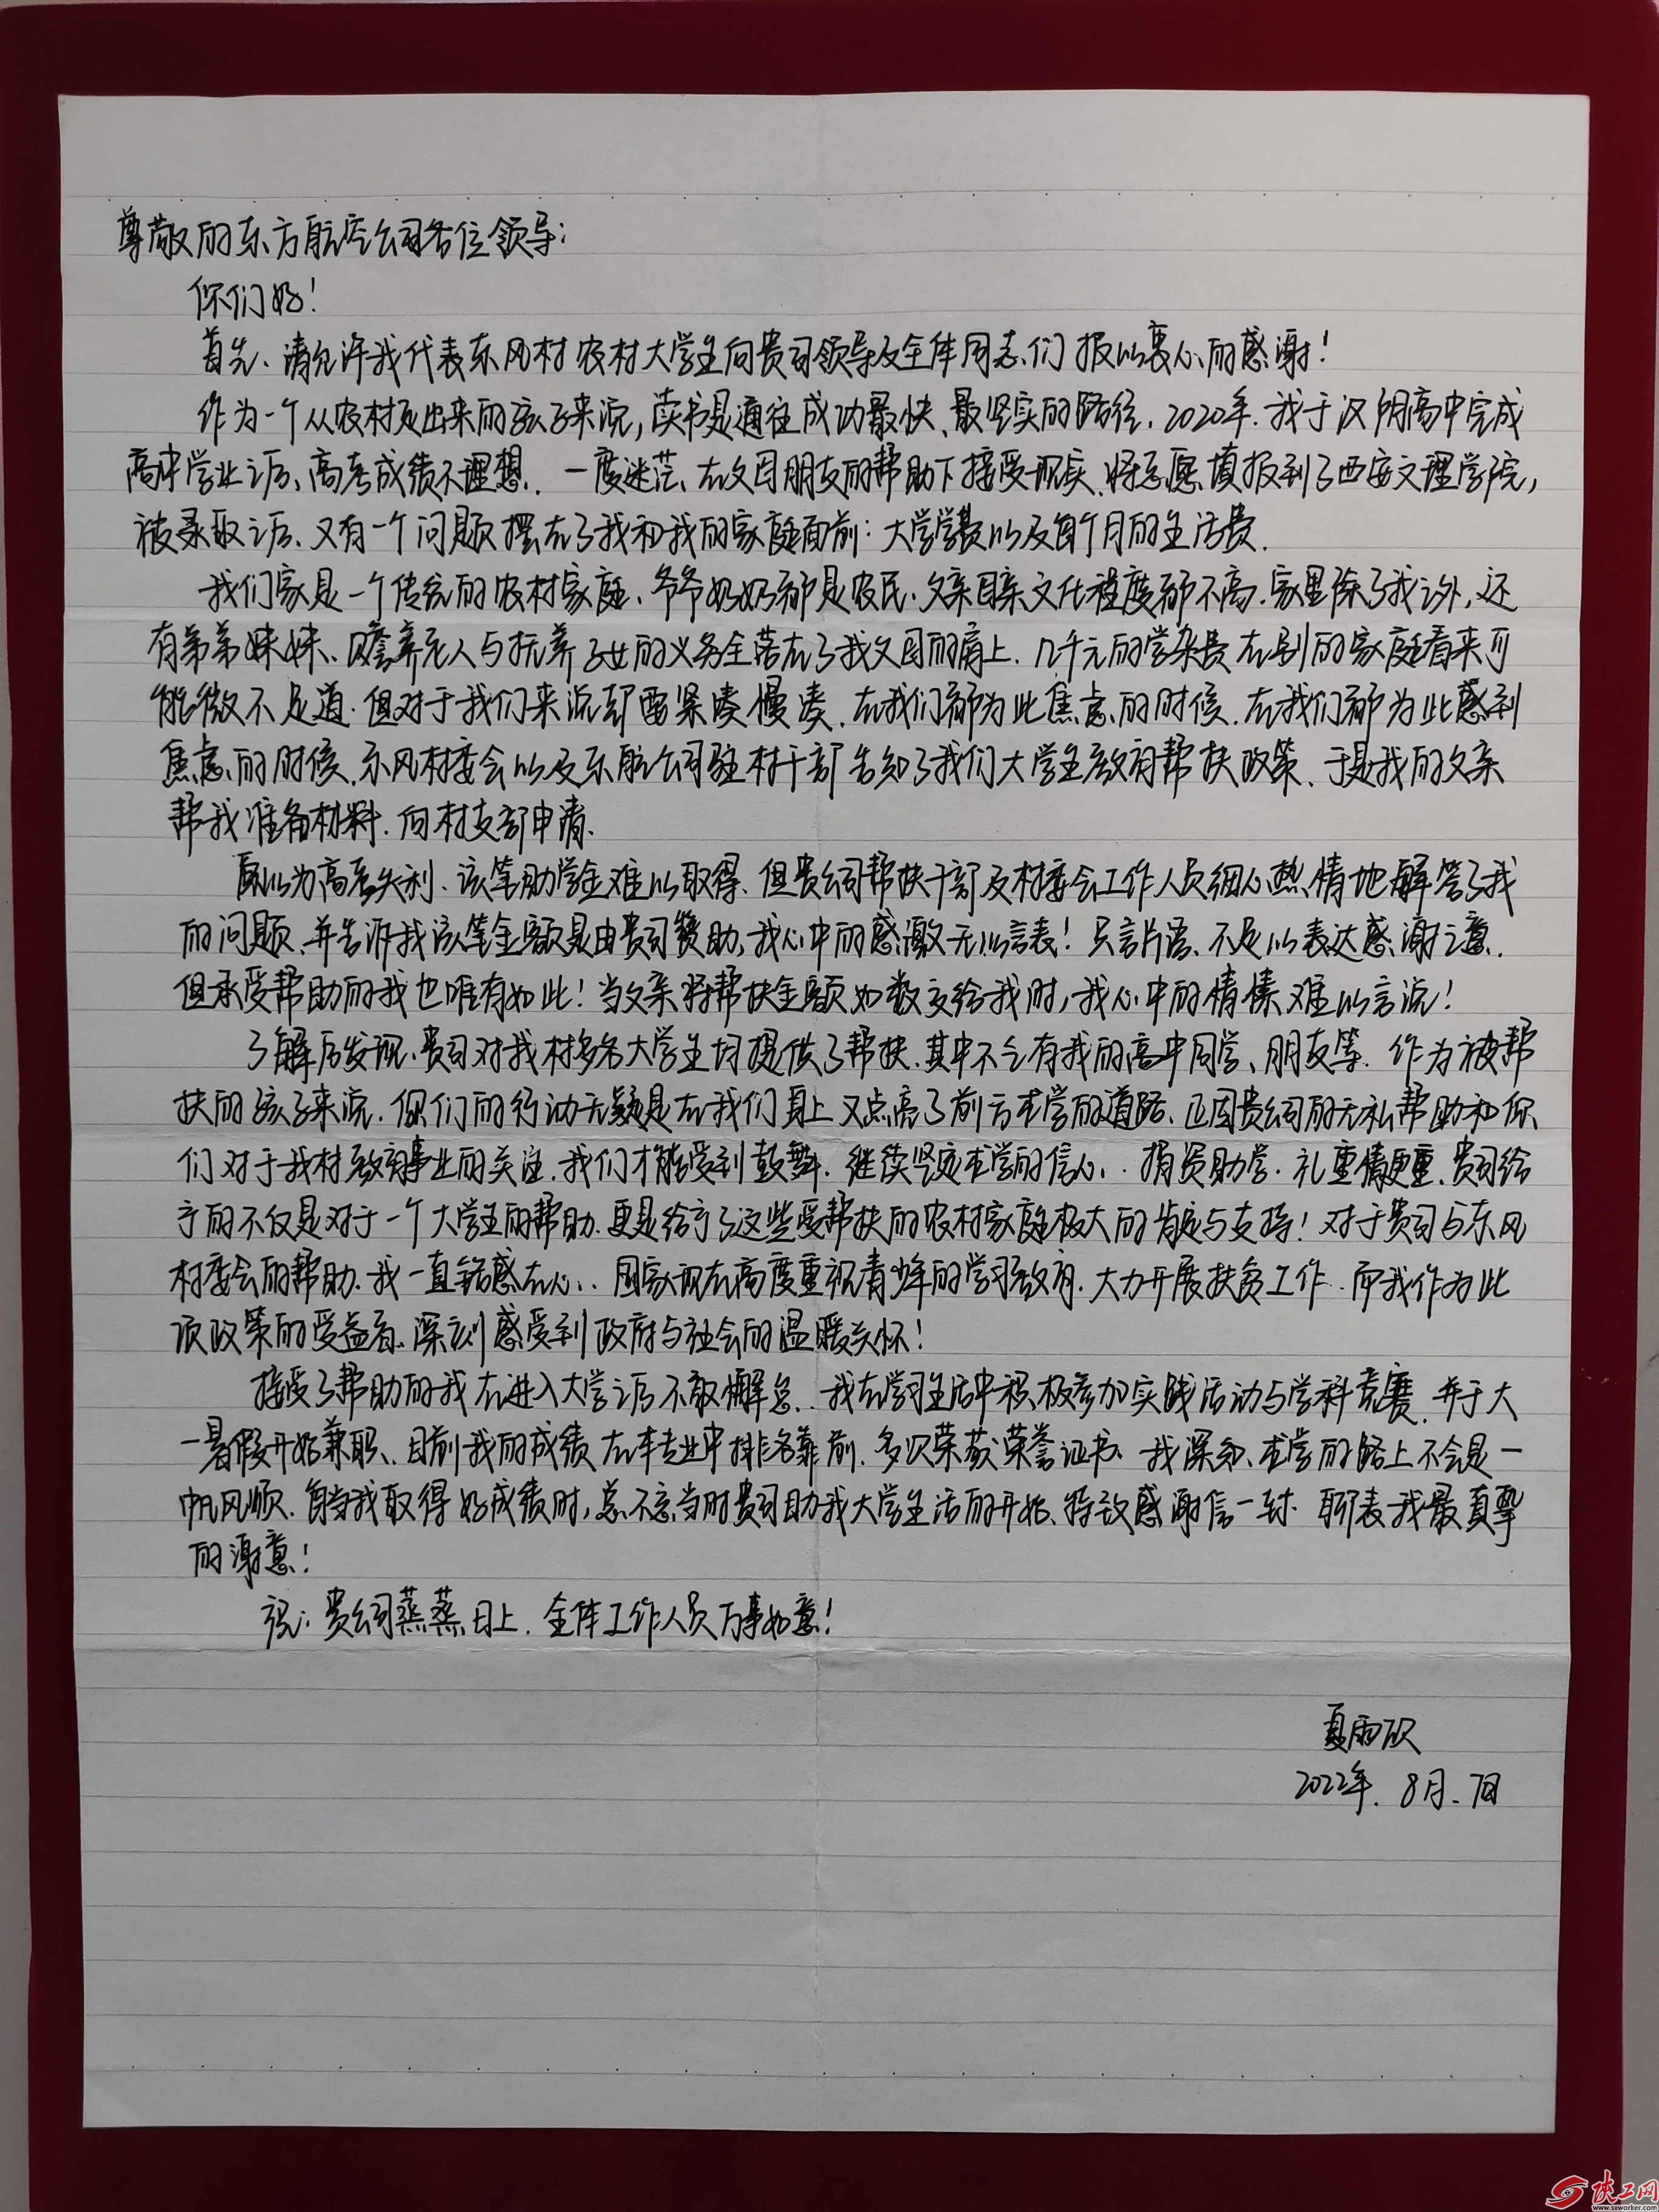 尊敬的东方航空公司各位领导：
你们好！
首先、请允许我代表东风村农村大学生向贵司领导及全体同志们报以衷心的感谢！
作为一个从农村走出来的孩子来说，读书是通往成功最快、最坚实的路径．2020年．我于汉阴高中完成
高中学业之后、高考成绩不理想．一度迷茫、在父母朋友的帮助下接受现实、将志愿填报到了西安文理学院，
被录取之后、又有一个问题摆在了我和我的家庭面前：大学学费以及每个月的生活费．
我们家是一个传统的农村家庭、爷爷奶奶都是农民．父亲母亲文化程度都不高．家里除了我之外，还
有弟弟妹妹、赡养老人与抚养子女的义务全落在了我父母的肩上．几千元的学杂费在别的家庭看来可
能微不足道．但对于我们来说却要紧凑慢凑．在我们都为此焦虑的时候．在我们都为此感到
焦虑的时候、东风村委会以及东航公司驻村干部告知了我们大学生教育帮扶政策、于是我的父亲
帮我准备材料．向村支部申请．
原以为高考失利、该笔助学金难以取得、但贵公司帮扶干部及村委会工作人员细心、热情地解答了我
的问题、并告诉我该笔金额是由贵司赞助，我心中的感激无以言表！只言片语、不足以表达感谢之意．
但承受帮助的我也唯有如此！当父亲将帮扶金额如数交给我时，我心中的情愫难以言说！
了解后发现、贵司对我村多名大学生均提供了帮扶．其中不乏有我的高中同学、朋友等．作为被帮
扶的孩子来说．你们的行动无疑是在我们身上又点亮了前方求学的道路、正因贵公司的无私帮助和你
们对于我村教育事业的关注、我们才能受到鼓舞．继续坚定求学的信心．捐资助学．礼重情更重．贵司给
予的不仅是对于一个大学生的帮助．更是给予了这些受帮扶的农村家庭极大的肯定与支持！对于贵司与东风
村委会的帮助．我一直铭感在心．国家现在高度重视青少年的学习教育．大力开展扶贫工作．而我作为此
项政策的受益者、深刻感受到政府与社会的温暖关怀！
接受了帮助的我在进入大学之后不敢懈怠．我在学习生活中积极参加实践活动与学科竞赛．并于大
一暑假开始兼职、目前我的成绩在本专业中排名靠前．多次荣获荣誉证书．我深知、求学的路上不会是一
帆风顺．每当我取得好成绩时，总不忘当时贵司助我大学生活的开始、特致感谢信一封．聊表我最真挚
的谢意！
祝：贵公司蒸蒸日上．全体工作人员万事如意！
夏雨欣
2022年．8月．7日
陕工网
www.sxworker.com